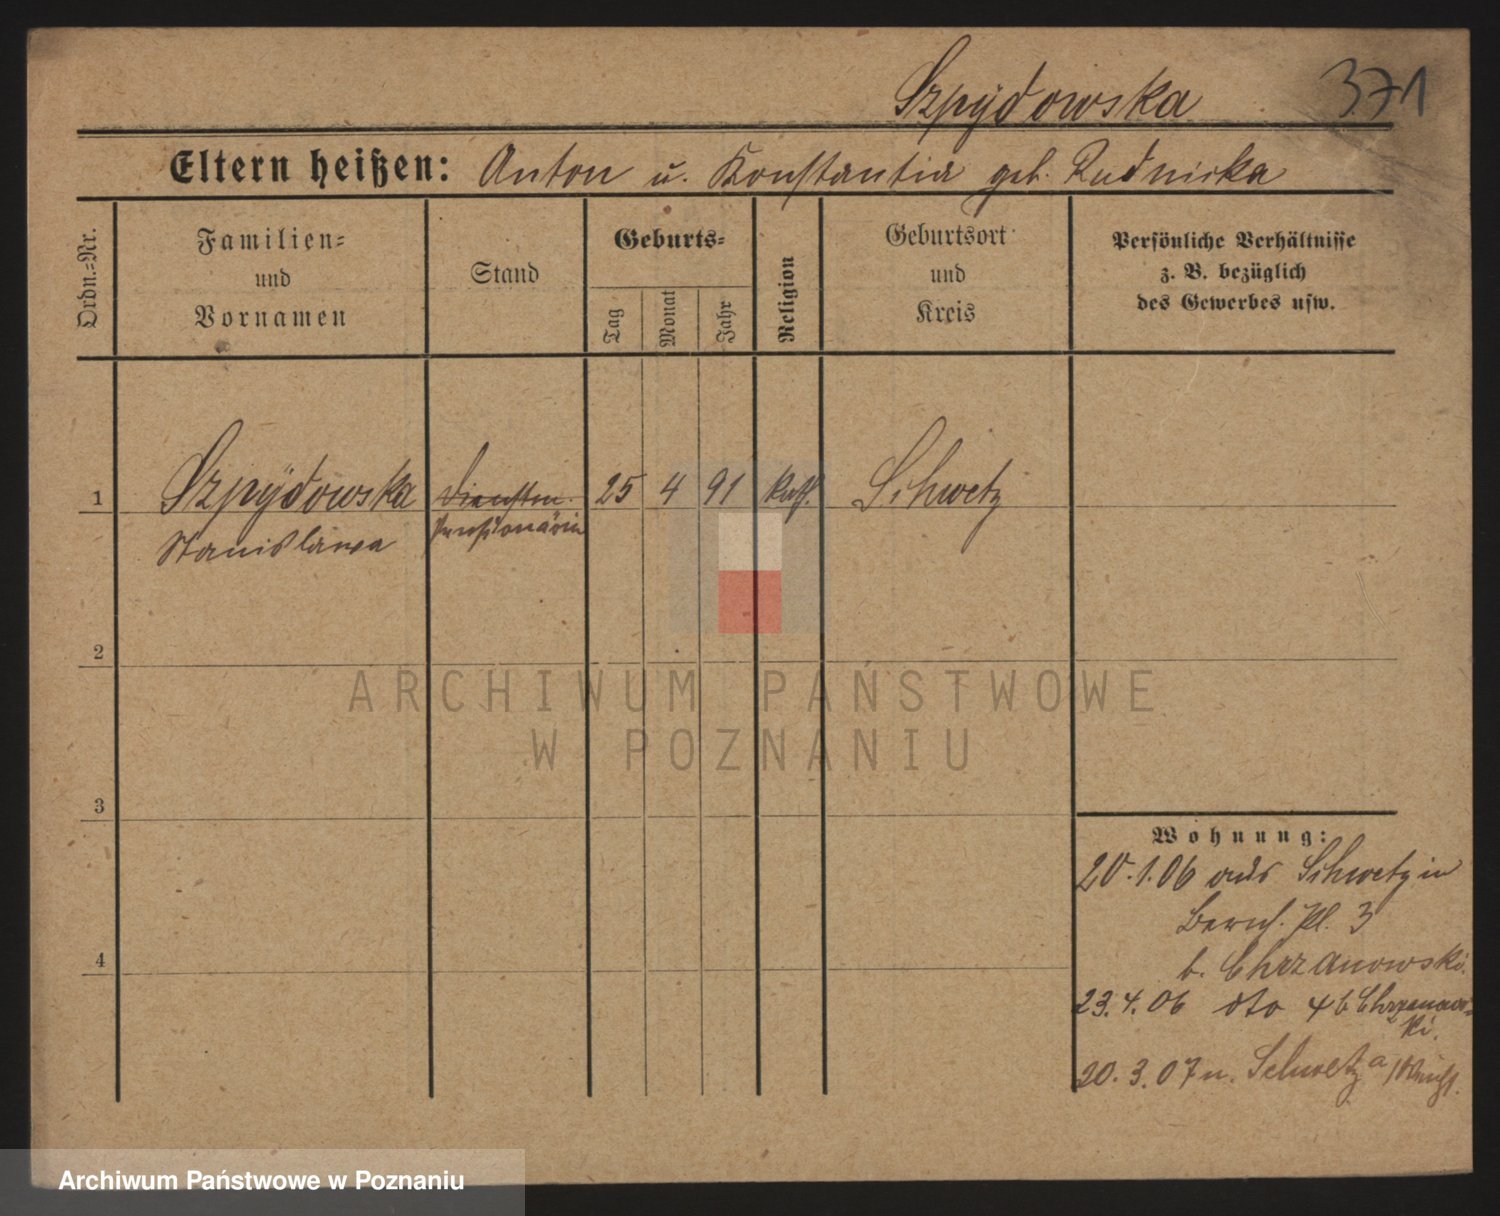 Szpÿdowska 371
Eltern heißen: Anton u. Konstantia geb. Rudnicka
Ordn.=Nr.
Familien=
und
Vornamen
Stand
Geburts=
Tag
Monat
Jahr
Religion
Geburtsort
und
Kreis
Persönliche Verhältnisse
z. B. bezüglich
des Gewerbes usw.
1 Szpÿdowska Dienstm. 25 4 91 kath. Schwetz
Stanislawa Pensionärin
2
ARCHIWUM PAŃSTWOWE
W POZNANIU
3
Wohnung:
20.1.06 aus Schwetz in
Bernh. Pl. 3
b. Chrzanowski.
4
23.4.06 dto 4 b Chrzanows=
ki.
20.3.07 n. Schwetz a/Weichs.
Archiwum Państwowe w Poznaniu